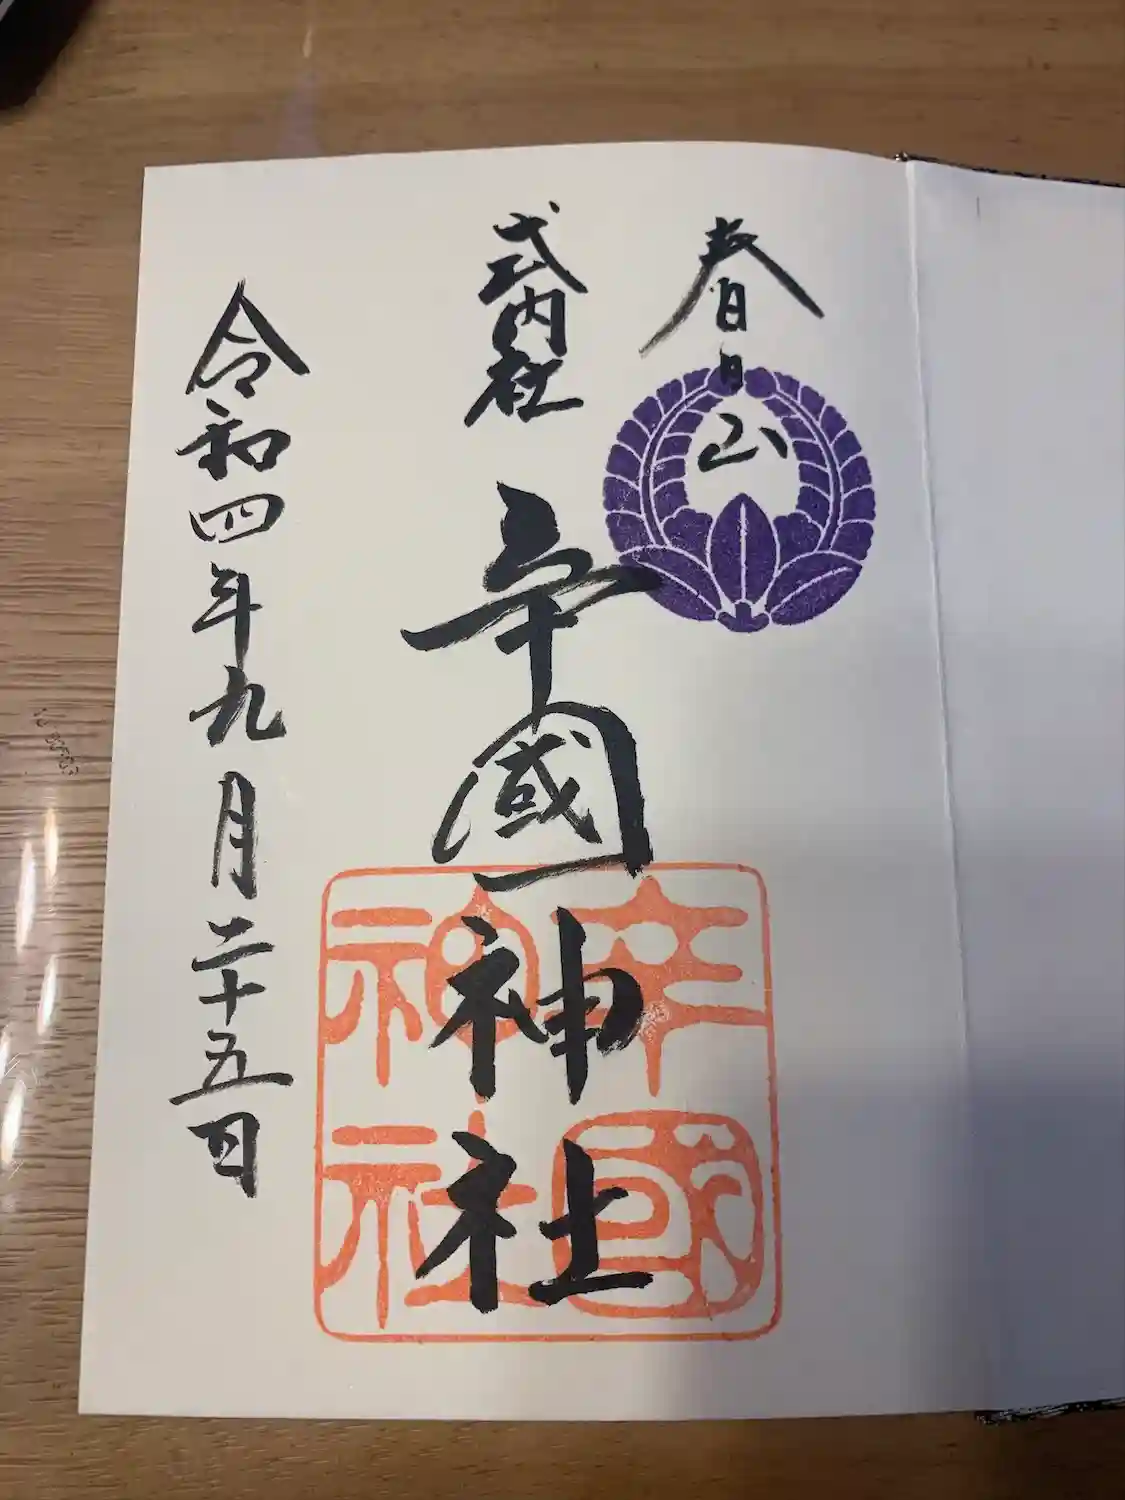 春日山
式内社
辛國神社
辛國神社
令和四年九月二十五日